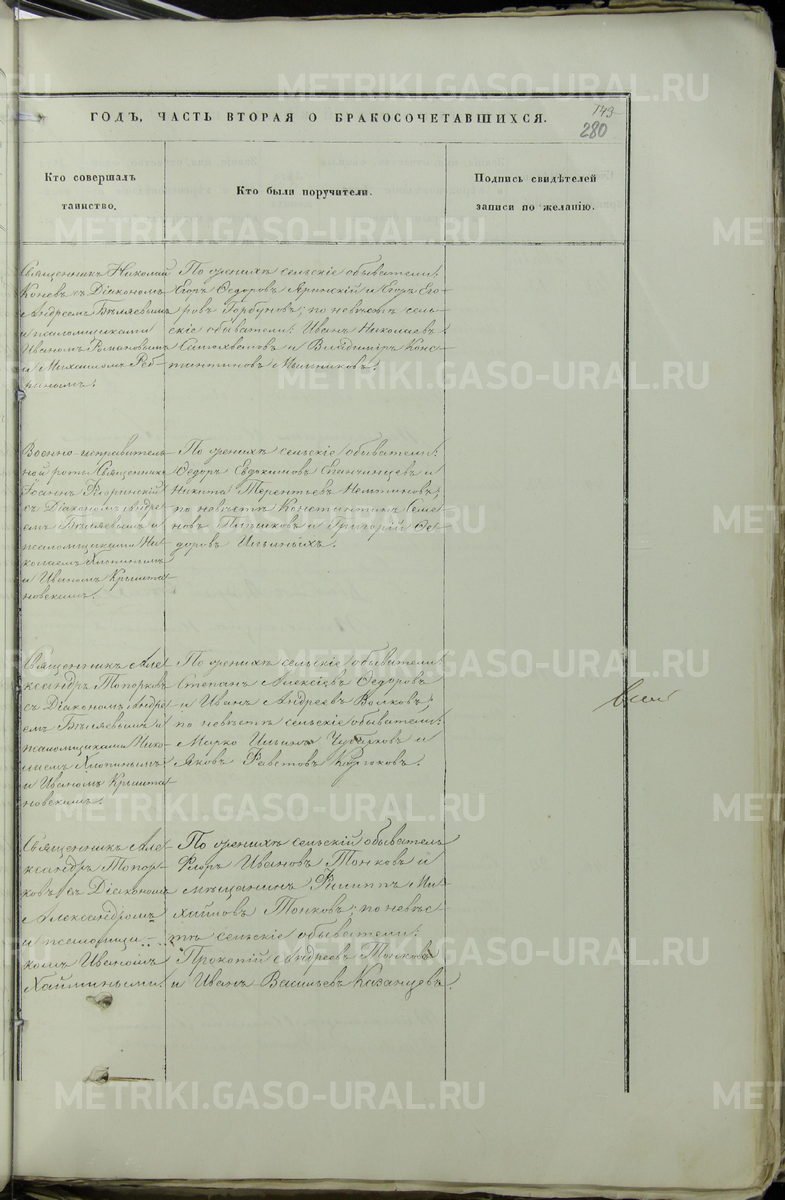 METRIKI.GASO-URAL.RU
ГОДЪ, ЧАСТЬ ВТОРАЯ О БРАКОСОЧЕТАВШИХСЯ.
143
280
Кто совершалъ
таинство.
Кто были поручители.
Подпись свидѣтелей
записи по желанію.
Священникъ Николай
Коневъ съ Діакономъ
Андреемъ Бѣляевымъ
и псаломщиками
Иваномъ Романовымъ
и Михаиломъ
По женихѣ сельскіе обыватели:
Егоръ Ѳедоровъ Яринскій и Егоръ Его-
ровъ Горбуновъ; по невѣстѣ сель-
скіе обыватели: Иванъ Николаевъ
Самохваловъ и Владиміръ Конс-
тантиновъ Мыльниковъ.
Военно-исправитель-
ной роты Священникъ
Іоаннъ Флоринскій
съ Діакономъ Андре-
емъ Бѣляевымъ и
псаломщиками Ни-
колаемъ Хлопинымъ
и Иваномъ Крышта-
новскимъ.
По женихѣ сельскіе обыватели:
Ѳедоръ Евдокимовъ Епанчинцевъ и
Никита Терентьевъ
по невѣстѣ Константинъ Семе-
новъ и Григорій Ѳе-
доровъ Ильиныхъ.
Священникъ Але-
ксандръ Топорковъ
съ Діакономъ Андре-
емъ Бѣляевымъ и
псаломщиками Нико-
лаемъ Хлопинымъ
и Иваномъ Крышта-
новскимъ.
По женихѣ сельскіе обыватели
Степанъ Алексіевъ Ѳедоровъ
и Иванъ Андреевъ Волковъ;
по невѣстѣ сельскіе обыватели:
Марко Ильинъ и
Яковъ Карюковъ.
Священникъ Але-
ксандръ Топор-
ковъ съ Діакономъ
Александромъ
и псаломщи-
комъ Иваномъ
По женихѣ сельскій обыватель
Флоръ Ивановъ Тонковъ и
мѣщанинъ Филиппъ Ми-
хайловъ Тонковъ; по невѣс-
тѣ сельскіе обыватели:
Прокопій Андреевъ Тонковъ
и Иванъ Васильевъ Казанцевъ.